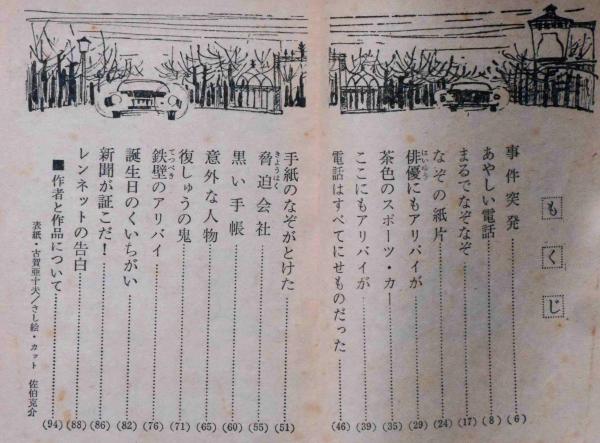 もくじ
事件突発……(6)
あやしい電話……(8)
まるでなぞなぞ……(17)
なぞの紙片……(24)
俳優にもアリバイが……(29)
茶色のスポーツ・カー……(35)
ここにもアリバイが……(39)
電話はすべてにせものだった……(46)
手紙のなぞがとけた……(51)
脅迫会社……(55)
黒い手帳……(60)
意外な人物……(65)
復しゅうの鬼……(71)
鉄壁のアリバイ……(76)
誕生日のくいちがい……(82)
新聞が証こだ！……(86)
レンネットの告白……(88)
■作者と作品について……(94)
表紙・古賀亜十夫／さし絵・カット 佐伯克介